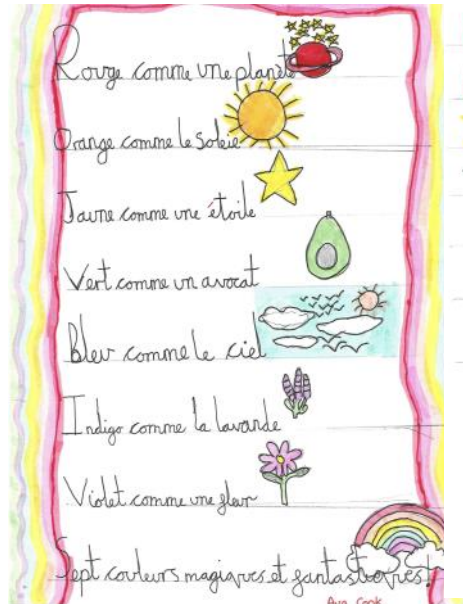 Rouge comme une planète
Orange comme le soleie
Jaune comme une étoile
Vert comme un avocat
Bleu comme le ciel
Indigo comme la lavande
Violet comme une fleur
Sept couleurs magiques et fantastiques!
Ava Cook